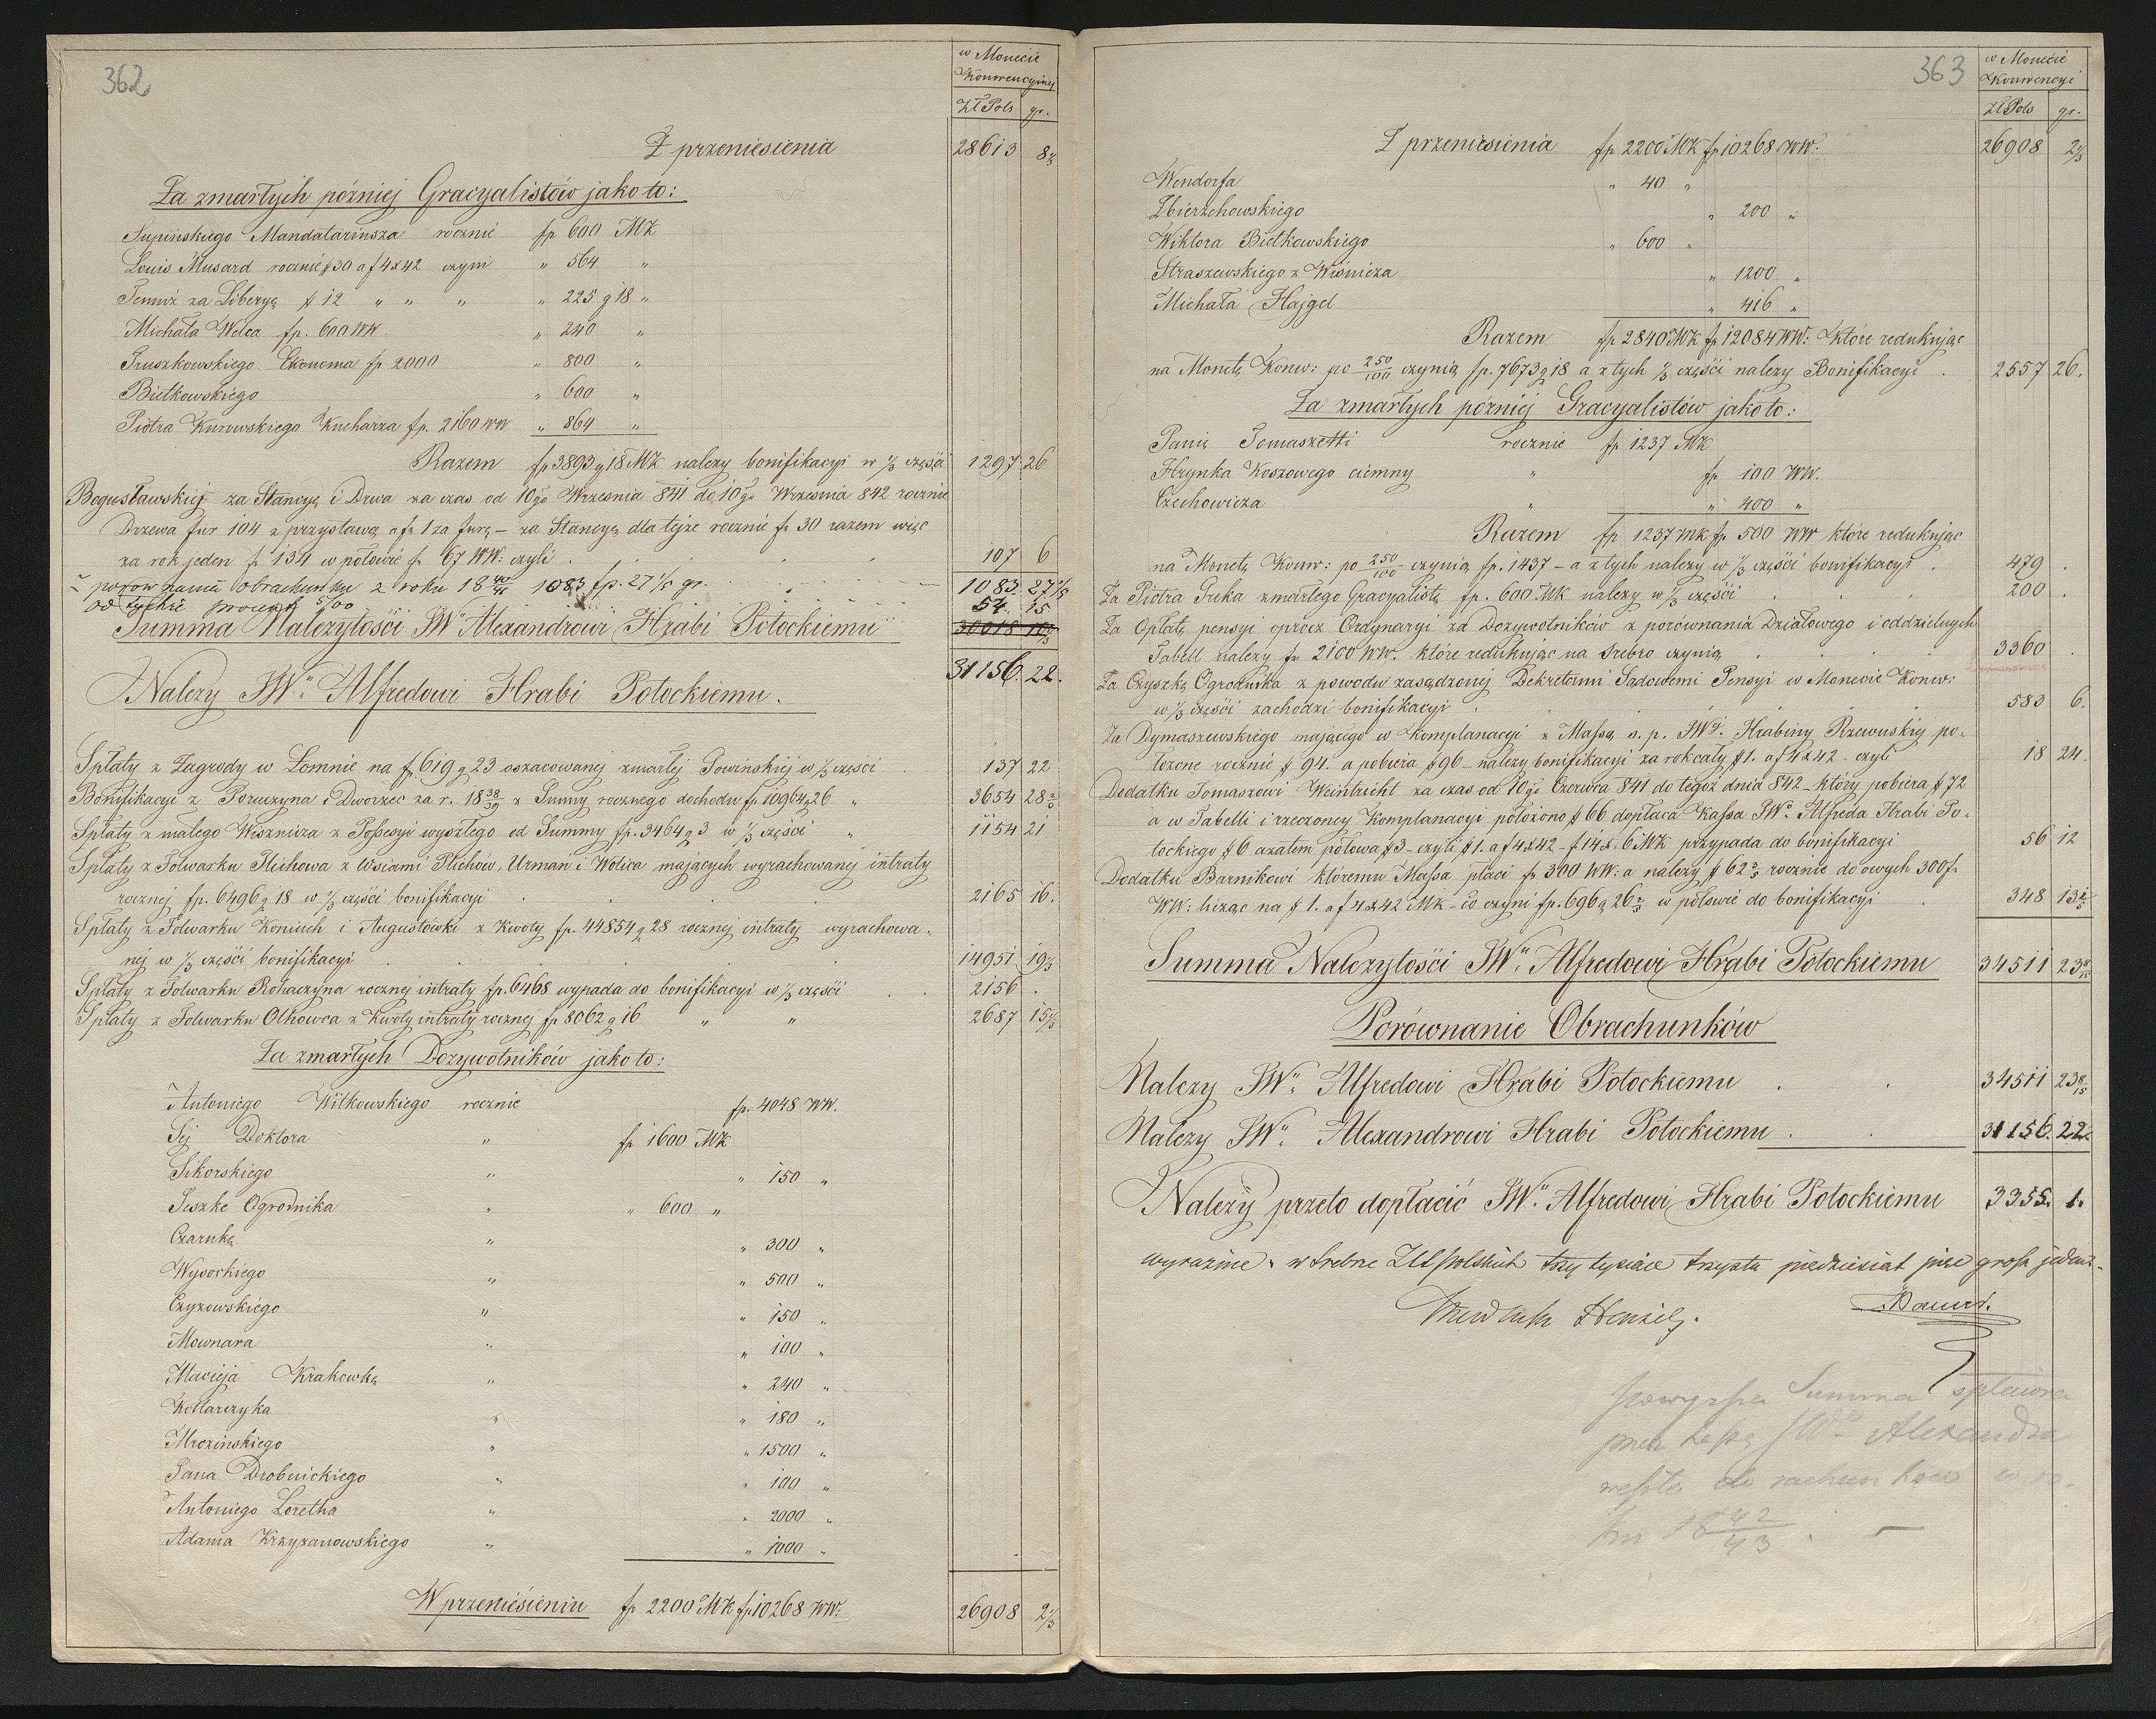 362
w Monecie
Konwencyjnej
Zł Pols gr.
Z przeniesienia 28613 8 2/3
Za zmarłych pózniej Gracyalistów jako to:
Supinskiego Mandatariusza rocznie fp 600 MK
Louis Musard rocznie # 30 a f 4 x 42 czyni " 564 "
Temuż za Liberyą # 12 " " " " 225 g 18 "
Michała Welca fp. 600 WW. " 240 "
Pruszkowskiego Ekonoma fp 2000 " 800 "
Bielkowskiego " 600 "
Piotra Kurowskiego Kucharza fp. 2160 WW " 864 "
Razem fp 3893 g 18 MK należy bonifikacyi w 1/3 części 1297 26
Bogusławskiej za Stancyę i Drwa za czas od 10go Września 841 do 10go Września 842 rocznie
Drzewa fur 104 z przystawą a fr 1 za furę – za Stancyę dla tejże rocznie fr 30 razem więc
za rok jeden fr 134 w połowie fr 67 WW: czyli 107 6
z porównania obrachunku z roku 18 40/41 1083 fp. 27 1/5 gr. 1083. 27 1/5
od tychże procent 5/100 54 15
Summa Należytości JWu Alexandrowi Hrabi Potockiemu 30018 10 2/3
31156. 22.
Należy JWu Alfredowi Hrabi Potockiemu.
Spłaty z Zagrody w Łomnie na fp. 619 g 23 oszacowanej zmarłej Powinskiej w 1/3 części 137 22
Bonifikacyi z Poruczyna i Dworzec za r. 18 38/39 z Summy rocznego dochodu fp. 10964 g 26 " 3654 28 2/3
Spłaty z małego Wisznicza z Possesyi wyszłego od Summy fp. 3464 g 3 w 1/3 części " 1154 21
Spłaty z Folwarku Plichowa z Wsiami Plichów, Urmań i Wolica mających wyrachowanej intraty
rocznej fp. 6496 g 18 w 1/3 części bonifikacyi 2165 16.
Spłaty z Folwarku Koniuch i Augustówki z Kwoty fp. 44854 g 28 rocznej intraty wyrachowa-
nej w 1/3 części bonifikacyi 14951 19 1/3
Spłaty z Folwarku Rohaczyna rocznej intraty fp. 6468 wypada do bonifikacyi w 1/3 części 2156 .
Spłaty z Folwarku Olhowca z Kwoty intraty rocznej fp 8062 g 16 " " 2687 15 1/3
Za zmarłych Dożywotników jako to:
Antoniego Wilkowskiego rocznie fp. 4048 WW.
Jej Doktora " fp 1600 MK
Sikorskiego " " 150 "
Peszke Ogrodnika " " 600 "
Czarnkę " " 300 "
Wysockiego " " 500 "
Czyżowskiego " " 150 "
Mownara " " 100 "
Macieja Krakowkę " " 240 "
Kotlarczyka " " 180 "
Mrozinskiego " " 1500 "
Jana Drobnickiego " " 100 "
Antoniego Loretha " " 2000 "
Adama Krzyżanowskiego " " 1000 "
W przeniesieniu fp 2200 MK fp 10268 WW: 26908 2 1/3
363
w Monecie
Konwencyi
Zł Pols gr.
Z przeniesienia fp 2200 MK fp 10268 WW. 26908 2 1/3
Wendorfa " 40 "
Zbierzchowskiego " 200 "
Wiktora Bielkowskiego " 600 "
Straszewskiego z Wiśnicza " 1200 "
Michała Hajgel " 416 "
Razem fp 2840 MK fp 12084 WW: które redukując
na Monetę Konw: po 250/100 czynią fp. 7673 g 18 a z tych 1/3 części należy Bonifikacyi 2557 26.
Za zmarłych pózniej Gracyalistów jako to:
Panię Tomaszetti rocznie fp 1237 MK
Hrynka Koszowego ciemny " fp 100 WW.
Czechowicza " " 400 "
Razem fp 1237 MK fp 500 WW które redukując
na Monetę Konw: po 250/100 czynią fp. 1437 – a z tych należy w 1/3 części bonifikacyi 479 .
Za Piotra Greka zmarłego Gracyalistę fp. 600 MK należy w 1/3 części 200 .
Za Opłatę pensyi oprocz Ordynaryi za Dożywotników z porównania Działowego i oddzielnych
Tabell należy fr 2100 WW. które redukując na Srebro czynią 3360 .
Za Czyszkę Ogrodnika z powodu zasądzonej Dekretami Sądowemi Pensyi w Monecie Konw:
w 1/3 części zachodzi bonifikacyi 583 6.
Za Dymaszewskiego mającego w Komplanacyi z Massą s. p. JWej Hrabiny Rzewuskiej po-
łożone rocznie # 94 – a pobiera # 96 – należy bonifikacyi za rok cały # 1. a f 4 x 42 – czyli 18 24.
Dodatku Tomaszowi Weinbricht za czas od 10go Czerwca 841 do tegoż dnia 842 – który pobiera # 72
a w Tabelli i rzeczoney Komplanacyi położono # 66 dopłaca Kassa JWo Alfreda Hrabi Po-
tockiego # 6 azatem połowa # 3 – czyli # 1. a f 4 x 42 – f 14 x 6 MK przypada do bonifikacyi 56 12
Dodatku Barnikowi któremu Massa płaci fr 300 WW: a należy # 62 2/5 rocznie do owych 300 fr
WW: licząc na # 1. a f 4 x 42 MK – co czyni fp. 696 g 26 2/5 w połowie do bonifikacyi 348 13 1/5
Summa Należytości JWu Alfredowi Hrabi Potockiemu 34511 23 8/15
Porównanie Obrachunków
Należy JWu Alfredowi Hrabi Potockiemu 34511 23 8/15
Należy JWu Alexandrowi Hrabi Potockiemu 31156. 22.
Należy przeto dopłacić JWu Alfredowi Hrabi Potockiemu 3355. 1.
wyraznie w Srebrze Złł polskich trzy tysiące trzysta piedziesiat pięc grosz jeden –
Powyższa Summa spłacona
przez Kassę JWo Alexandra
weszła do rachunków w ro-
ku 18 42/43 . –